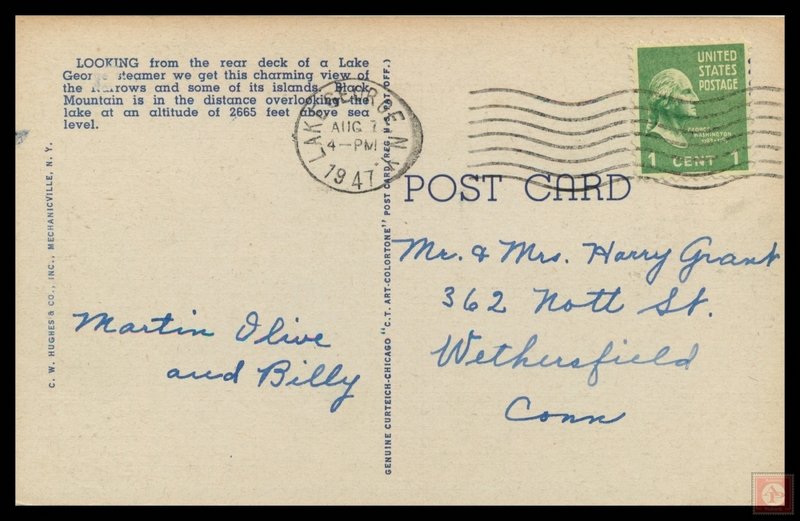 LOOKING from the rear deck of a Lake
George steamer we get this charming view of
the Narrows and some of its islands. Black
Mountain is in the distance overlooking the
lake at an altitude of 2665 feet above sea
level.
C. W. HUGHES & CO., INC., MECHANICVILLE, N. Y.
Martin Olive
and Billy
GENUINE CURTEICH-CHICAGO "C.T. ART-COLORTONE" POST CARD (REG. U.S. PAT. OFF.)
LAKE GEORGE N.Y.
AUG 7
4-PM
1947
UNITED
STATES
POSTAGE
GEORGE
WASHINGTON
1 CENT 1
POST CARD
Mr. & Mrs. Harry Grant
362 Nott St.
Wethersfield
Conn